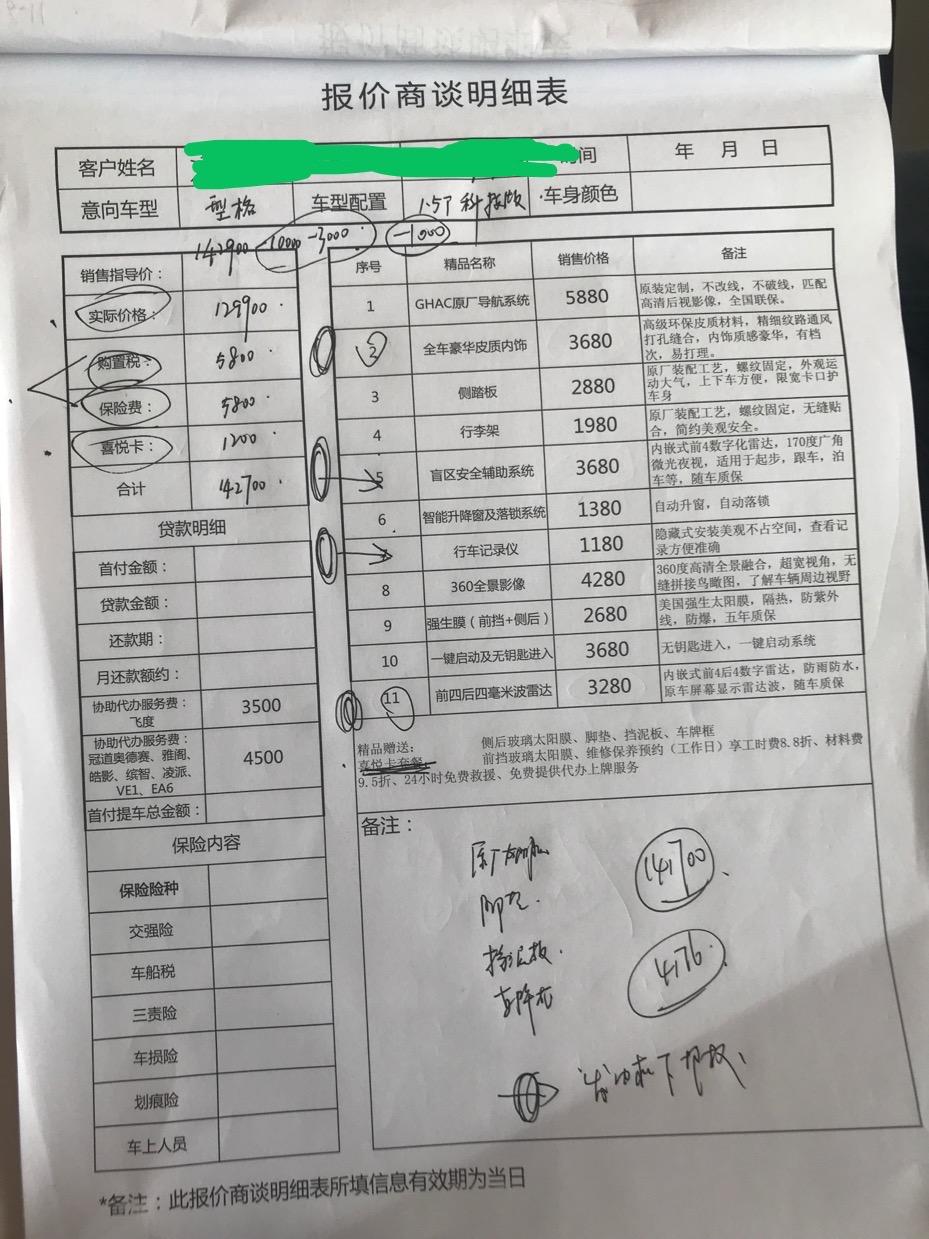 报价商谈明细表
客户姓名 时间 年 月 日
意向车型 型格 车型配置 1.5T 科技版 车身颜色
142900 -10000 -3000 -1000
销售指导价：
实际价格： 129900
购置税： 5800
保险费： 5800
喜悦卡： 1200
合计 142700
贷款明细
首付金额：
贷款金额：
还款期：
月还款额约：
协助代办服务费： 3500
飞度
协助代办服务费：
冠道奥德赛、雅阁、 4500
皓影、缤智、凌派、
VE1、EA6
首付提车总金额：
保险内容
保险险种
交强险
车船税
三责险
车损险
划痕险
车上人员
序号 精品名称 销售价格 备注
1 GHAC原厂导航系统 5880 原装定制，不改线，不破线，匹配
高清后视影像，全国联保。
2 全车豪华皮质内饰 3680 高级环保皮质材料，精细纹路通风
打孔缝合，内饰质感豪华，有档
次，易打理。
3 侧踏板 2880 原厂装配工艺，螺纹固定，外观运
动大气，上下车方便，限宽卡口护
车身
4 行李架 1980 原厂装配工艺，螺纹固定，无缝贴
合，简约美观安全。
5 盲区安全辅助系统 3680 内嵌式前4数字化雷达，170度广角
微光夜视，适用于起步，跟车，泊
车等，随车质保
6 智能升降窗及落锁系统 1380 自动升窗，自动落锁
行车记录仪 1180 隐藏式安装美观不占空间，查看记
录方便准确
8 360全景影像 4280 360度高清全景融合，超宽视角，无
缝拼接鸟瞰图，了解车辆周边视野
9 强生膜（前挡+侧后） 2680 美国强生太阳膜，隔热，防紫外
线，防爆，五年质保
10 一键启动及无钥匙进入 3680 无钥匙进入，一键启动系统
11 前四后四毫米波雷达 3280 内嵌式前4后4数字雷达，防雨防水，
原车屏幕显示雷达波，随车质保
精品赠送： 侧后玻璃太阳膜、脚垫、挡泥板、车牌框
喜悦卡套餐 前挡玻璃太阳膜、维修保养预约（工作日）享工时费8.8折、材料费
9.5折、24小时免费救援、免费提供代办上牌服务
备注：
原厂太阳膜 141700
脚垫
挡泥板
4176
发动机下护板
*备注：此报价商谈明细表所填信息有效期为当日